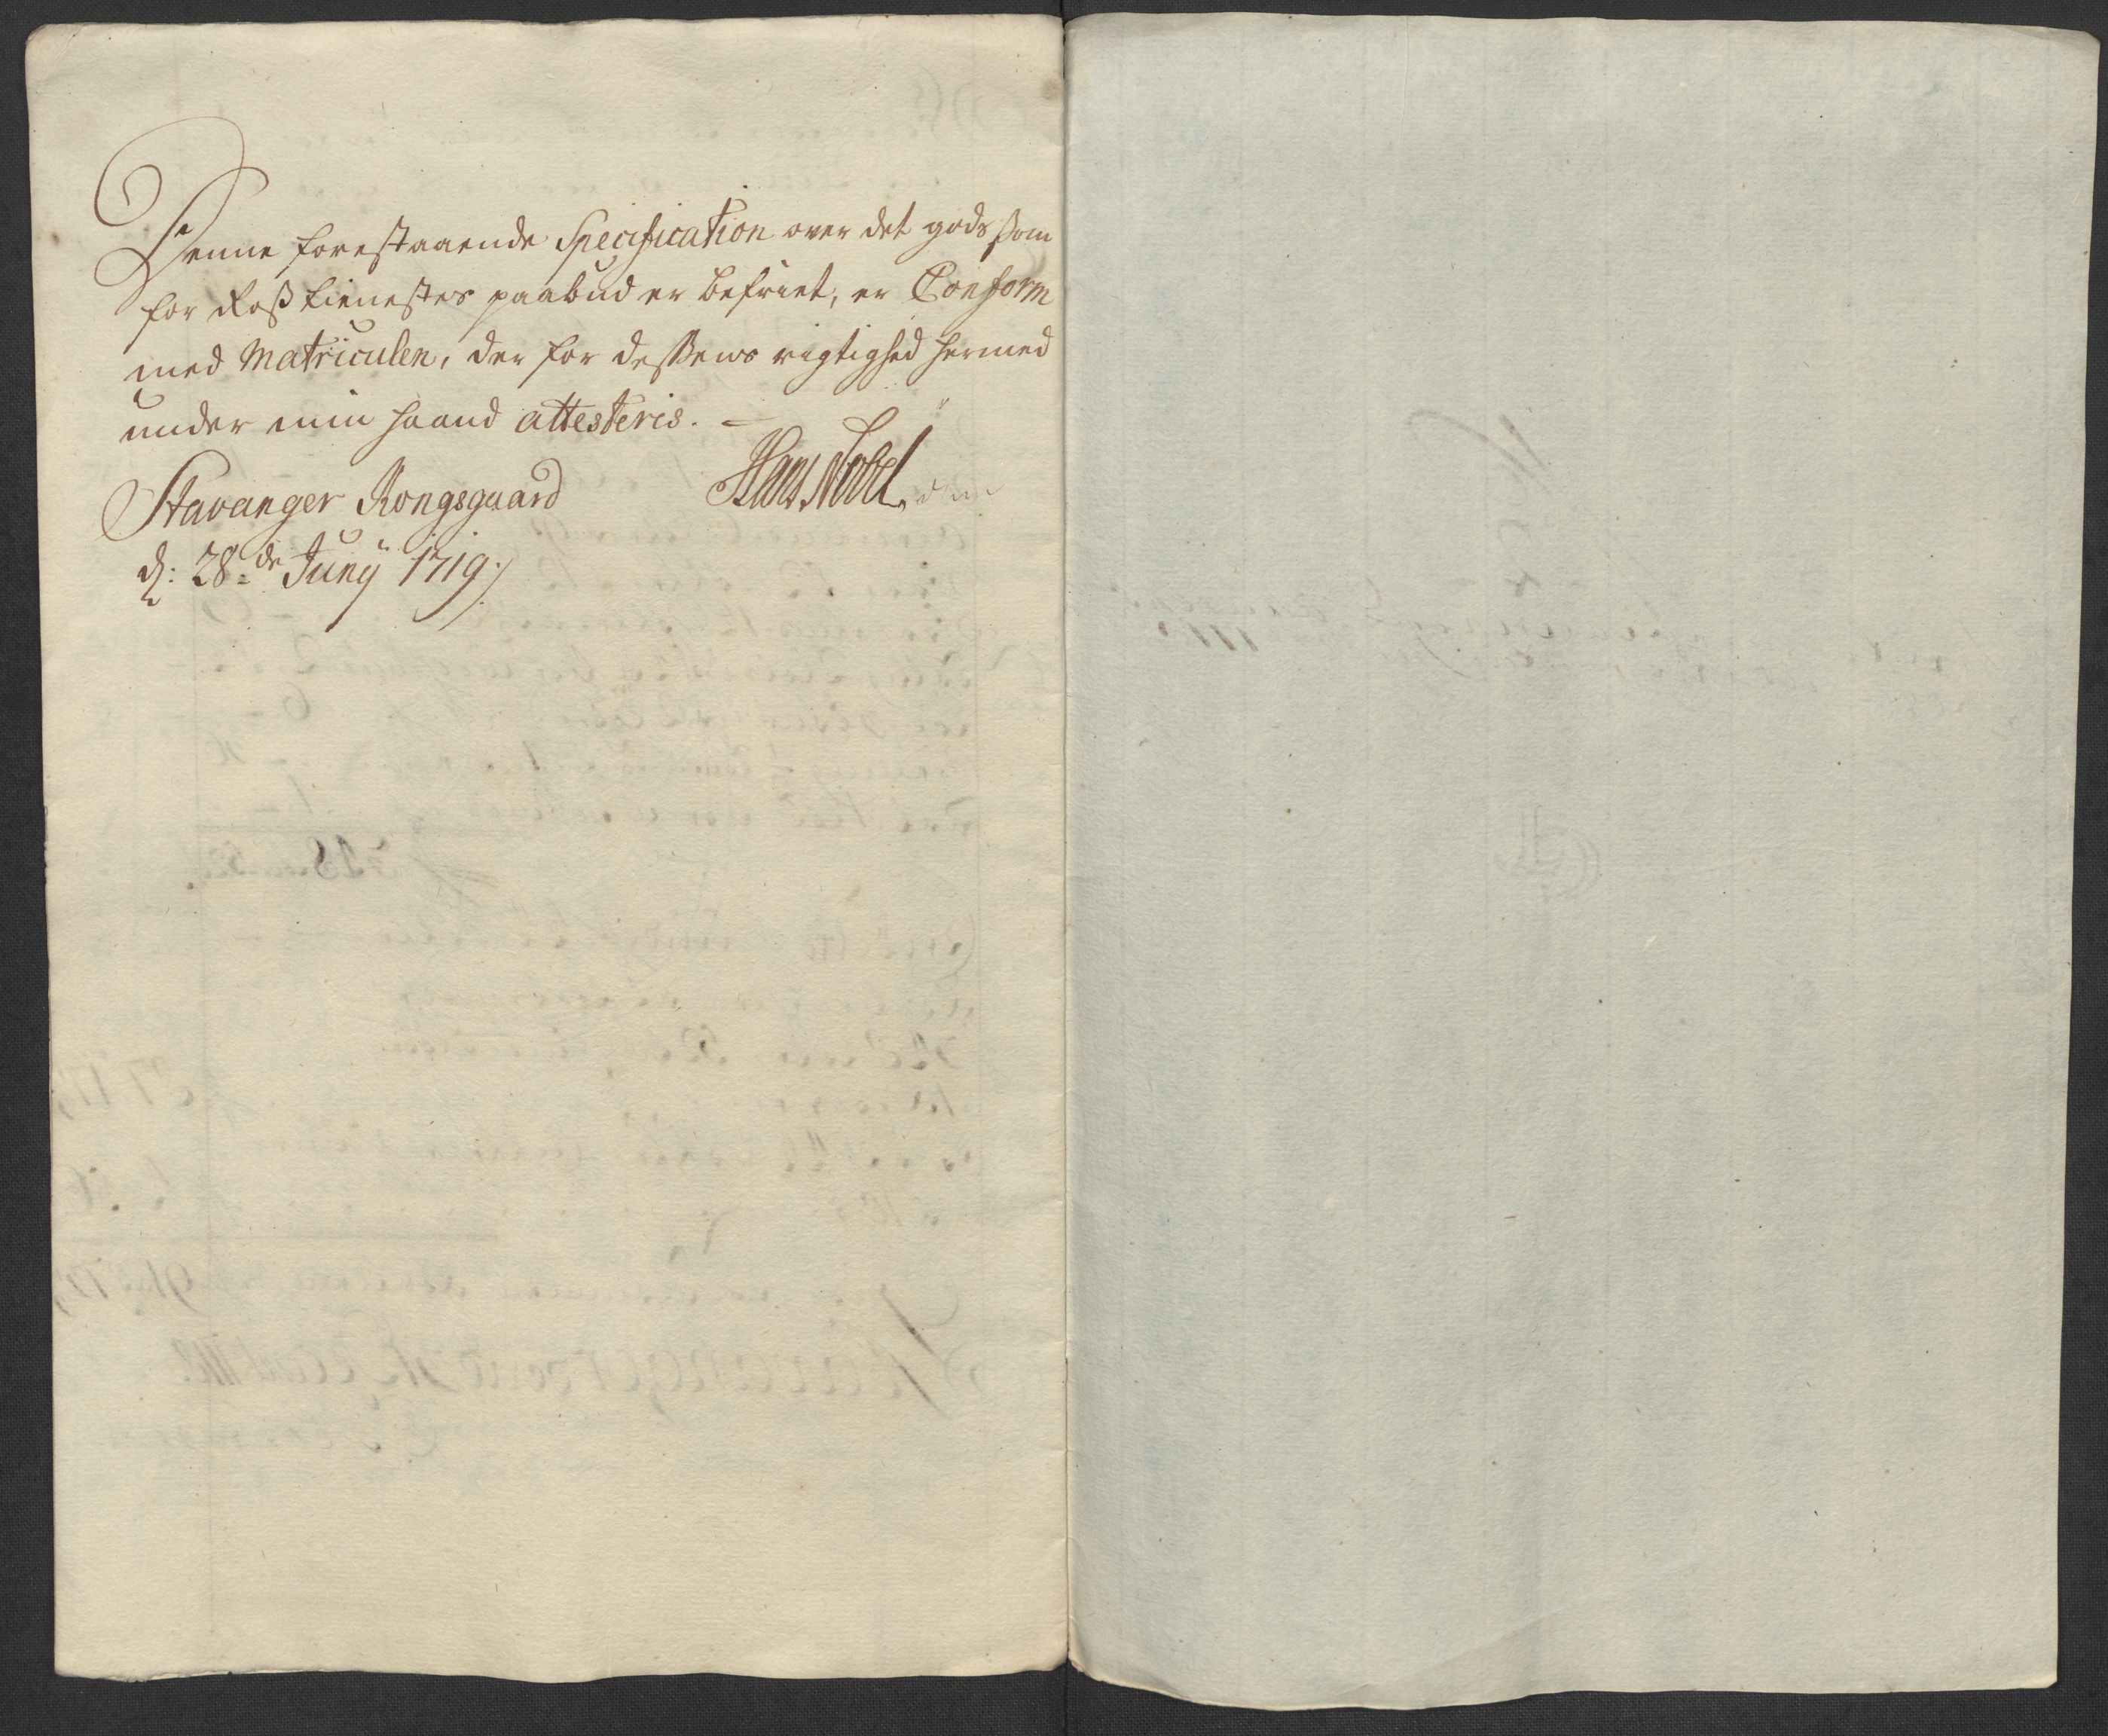 Denne forestaaende Specification over det gods som
for Roß tienestes paabud er befriet, er Conform
med Matriculen, der for deßens rigtighed hermed
under min haand attesteris. —
Hans Nobel
Stavanger Kongsgaard
d: 28de Juny 1719